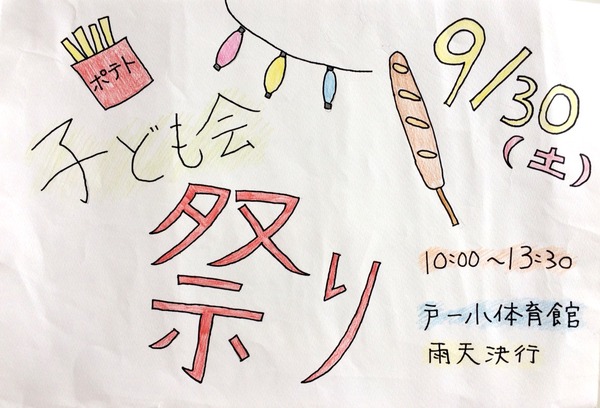 ポテト
子ども会
祭り
9/30
(土)
10:00~13:30
戸一小体育館
雨天決行